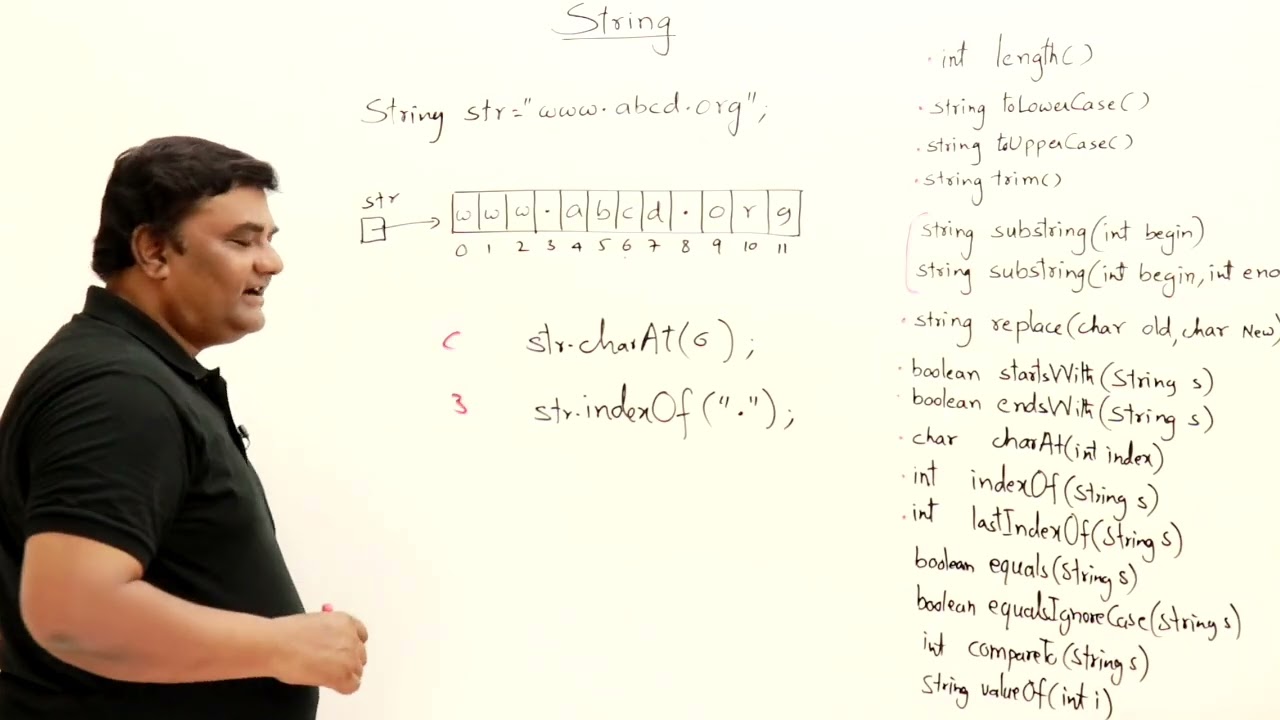 String
String str="www.abcd.org";
str
w w w . a b c d . o r g
0 1 2 3 4 5 6 7 8 9 10 11
c str.charAt(6);
3 str.indexOf(".");
. int length()
. string toLowerCase()
. string toUpperCase()
. string trim()
string substring(int begin)
string substring(int begin, int end
. string replace(char old, char New)
. boolean startsWith(String s)
. boolean endsWith(String s)
. char charAt(int index)
. int indexOf(String s)
. int lastIndexOf(String s)
boolean equals(String s)
boolean equalsIgnoreCase(String s)
int compareTo(String s)
string valueOf(int i)